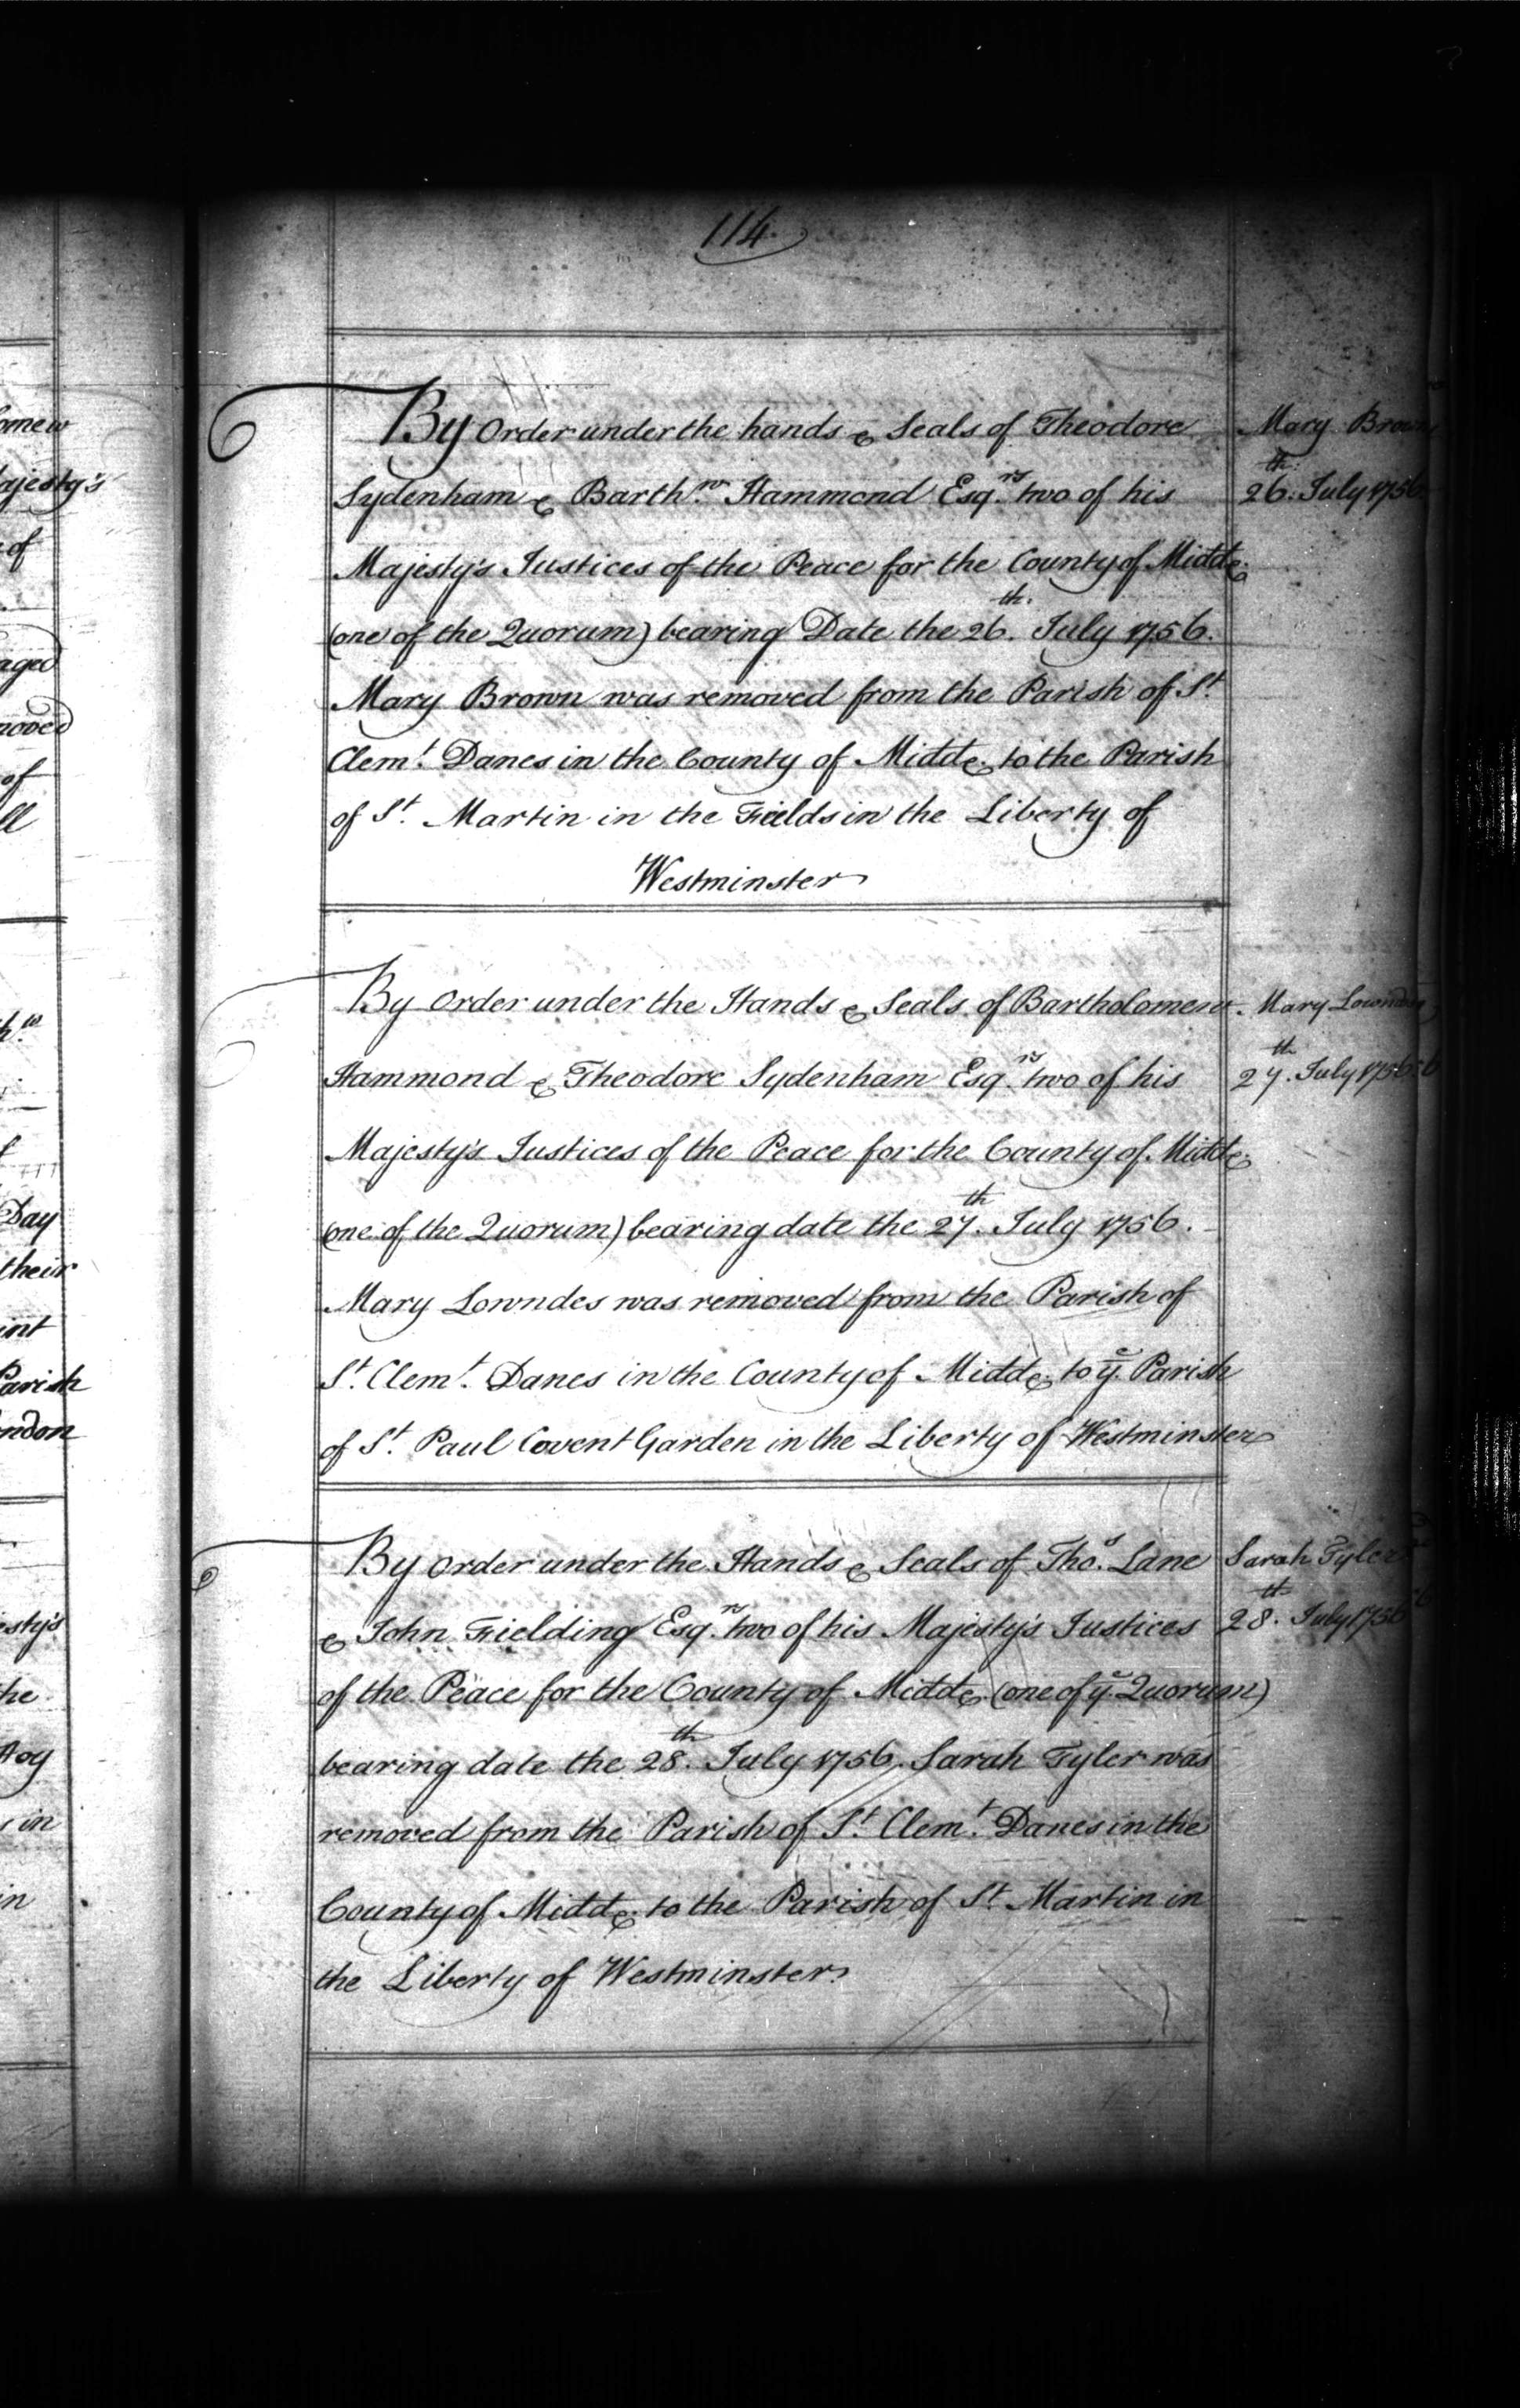 114.
By Order under the hands & Seals of Theodore
Sydenham & Barth.w Hammond Esq.rs two of his
Majesty's Justices of the Peace for the County of Middx.
(one of the Quorum) bearing Date the 26.th July 1756.
Mary Brown was removed from the Parish of St.
Clemt. Danes in the County of Middx. to the Parish
of St. Martin in the Fields in the Liberty of
Westminster
Mary Brown
26.th July 1756
By Order under the Hands & Seals of Bartholomew
Hammond & Theodore Sydenham Esq.rs two of his
Majesty's Justices of the Peace for the County of Middx.
(one of the Quorum) bearing date the 27.th July 1756.
Mary Lowndes was removed from the Parish of
St. Clemt. Danes in the County of Middx. to ye. Parish
of St. Paul Covent Garden in the Liberty of Westminster
Mary Lowndes
27.th July 1756
By Order under the Hands & Seals of Thos. Lane
& John Fielding Esq.rs two of his Majesty's Justices
of the Peace for the County of Middx. (one of ye. Quorum)
bearing date the 28.th July 1756. Sarah Tyler was
removed from the Parish of St. Clemt. Danes in the
County of Middx. to the Parish of St. Martin in
the Liberty of Westminster.
Sarah Tyler
28.th July 1756
ajesty's
of
aged
moved
of
ll
Day
their
int
Parish
ondon
esty's
he
in
in